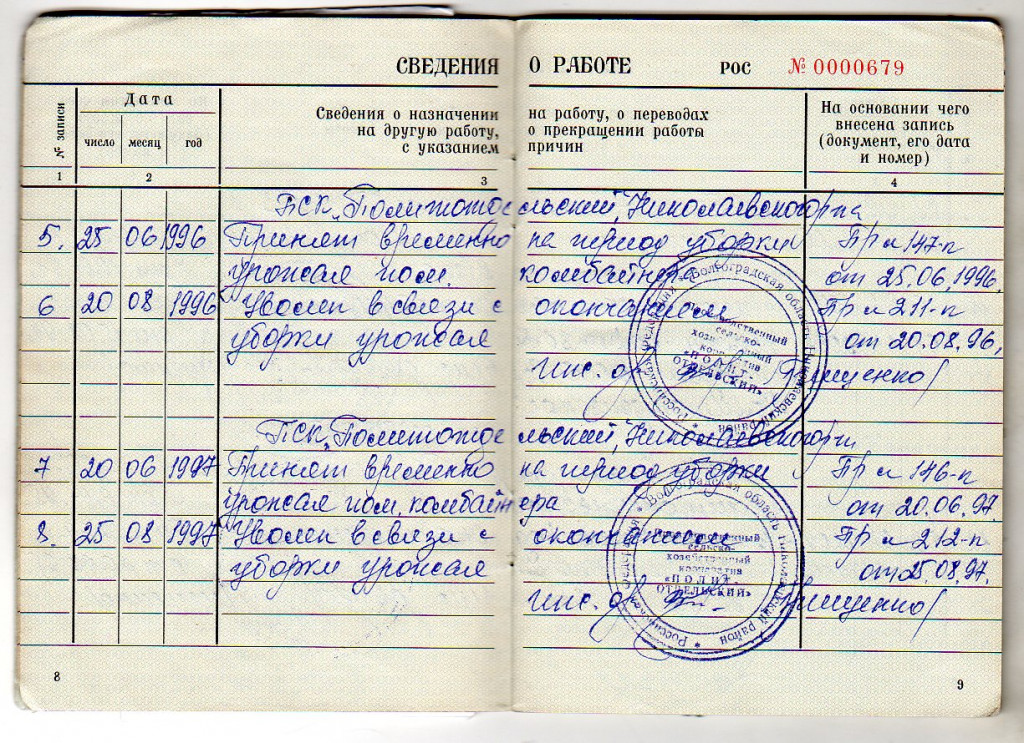 СВЕДЕНИЯ О РАБОТЕ РОС № 0000679
№ записи
Дата
число месяц год
Сведения о назначении на работу, о переводах
на другую работу, о прекращении работы
с указанием причин
На основании чего
внесена запись
(документ, его дата
и номер)
1 2 3 4
ПСК „Политотдельский" Николаевского р-на
5. 25 06 1996 Принят временно на период уборки Пр № 147-п
урожая пом. комбайнера от 25.06.1996.
6 20 08 1996 Уволен в связи с окончанием Пр № 211-п
уборки урожая от 20.08.96.
Инс. о/к /Грищенко/
ПСК „Политотдельский" Николаевского р-н
7 20 06 1997 Принят временно на период уборки Пр № 146-п
урожая пом. комбайнера от 20.06.97.
8. 25 08 1997 Уволен в связи с окончанием Пр № 212-п
уборки урожая от 25.08.97.
Инс. о/к /Грищенко/
* Российская Федерация * Волгоградская область Николаевский район
Производственный
сельско-
хозяйственный
кооператив
«ПОЛИТ-
ОТДЕЛЬСКИЙ»
* Российская Федерация * Волгоградская область Николаевский район
Производственный
сельско-
хозяйственный
кооператив
«ПОЛИТ-
ОТДЕЛЬСКИЙ»
8
9